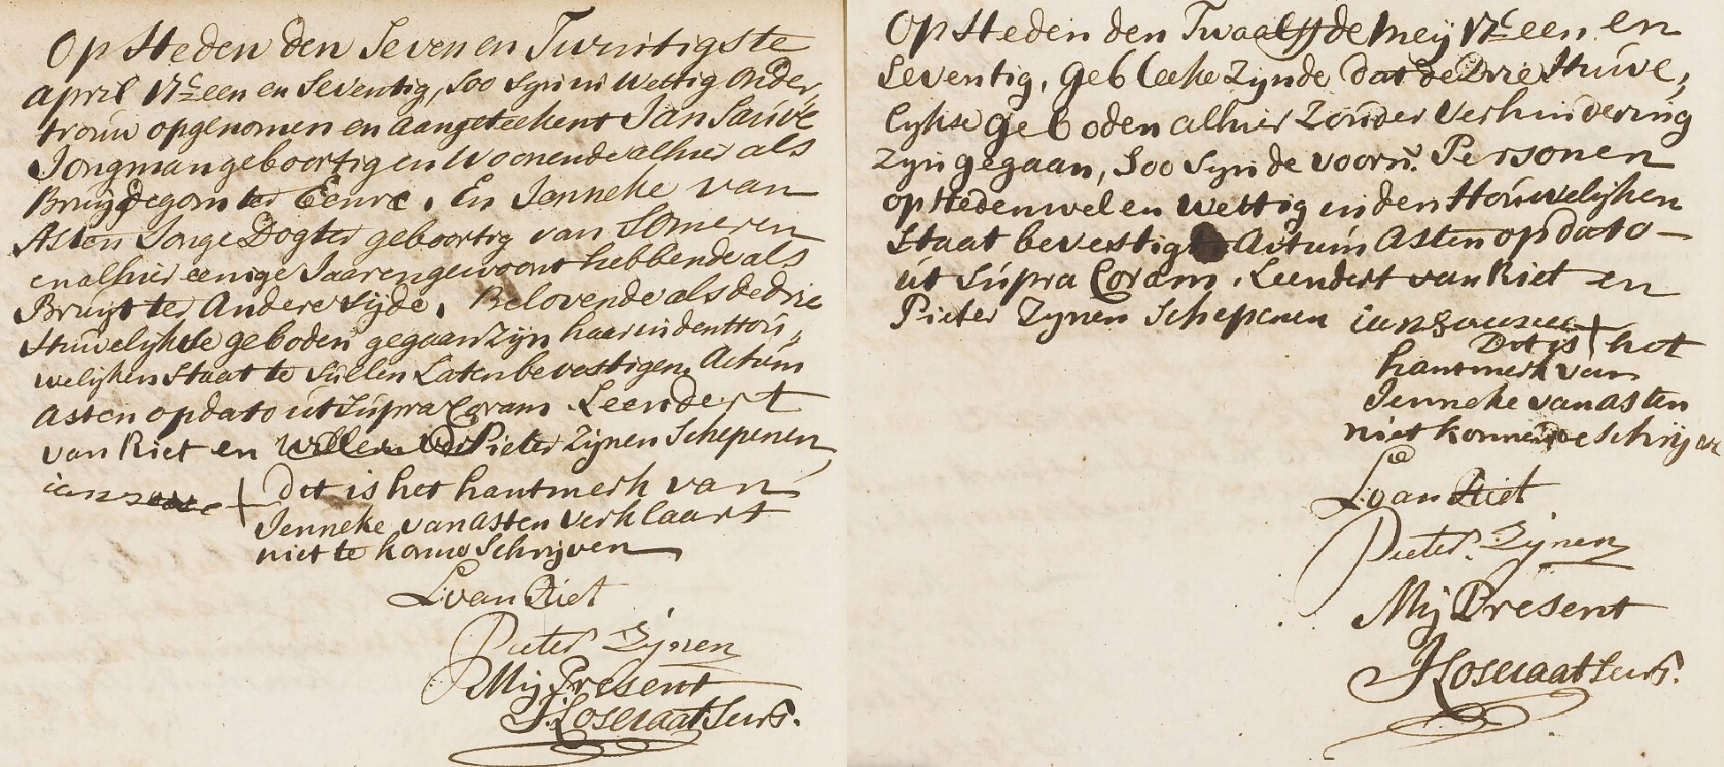 Op Heden den Seven en Twintigste
april 17c een en Seventig, Soo Syn in Wettig onder,
trouw opgenomen en aangeteekent Jan Sauvé
Jongman geboortig en Woonende alhier als
Bruydegom ter Eenre, En Jenneke van
Asten Jonge Dogter geboortig van Someren
en alhier eenige Jaaren gewoont hebbende als
Bruyt ter Andere Sijde, Belovende als de drie
Huwelykse geboden gegaan zyn haar in den Hou,
welyken Staat te Sullen Laten bevestigen, Actum
Asten op dato ut Supra Coram Leendert
van Riet en Pieter Zynen Schepenen,
Dit is het hantmerk van
Jenneke van Asten verklaart
niet te konne Schrijven
L van Riet
Pieter Zijnen
Mij Present
J Losecaat Secrs.
Op Heden den Twaalffde Meij 17c een en
Seventig, Gebleeke zynde dat de Drie Huwe,
lykse Geboden alhier Zonder Verhindering
Zyn gegaan, Soo Syn de voorn. Personen
op Heden wel en Wettig in den Houwelyken
Staat bevestigt Actum Asten op dato
ut Supra Coram, Leendert van Riet en
Pieter Zynen Schepenen
Dit is + het
hantmerk van
Jenneke van Asten
niet konnende Schrijve
L van Riet
Pieter Zijnen
Mij Present
J Losecaat Secrs.